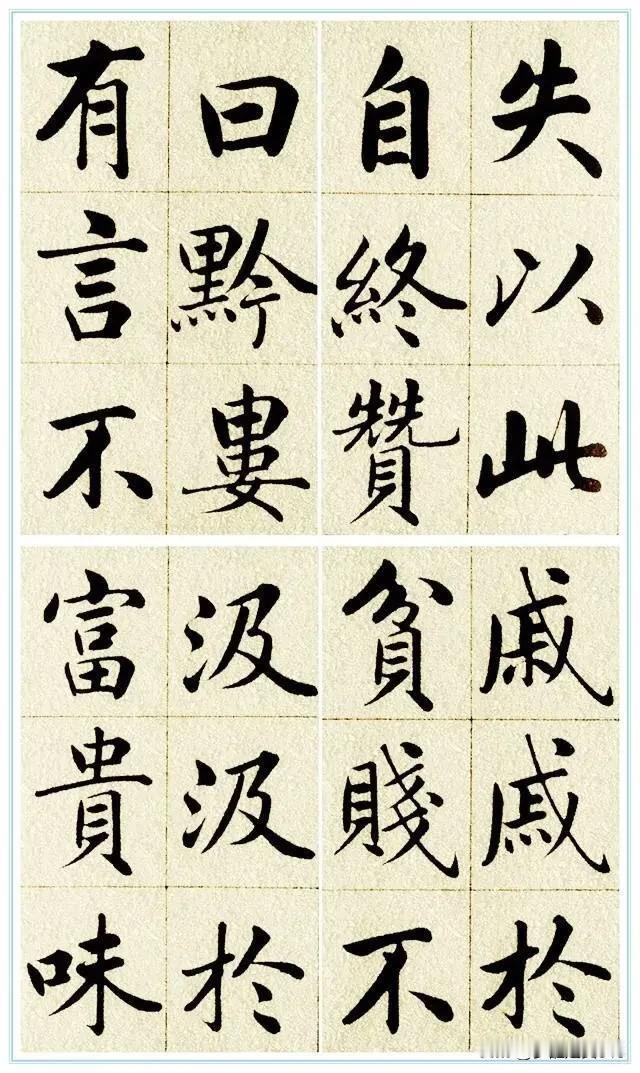 失以此
自終贊
曰黔婁
有言不
戚戚於
貧賤不
汲汲於
富貴味